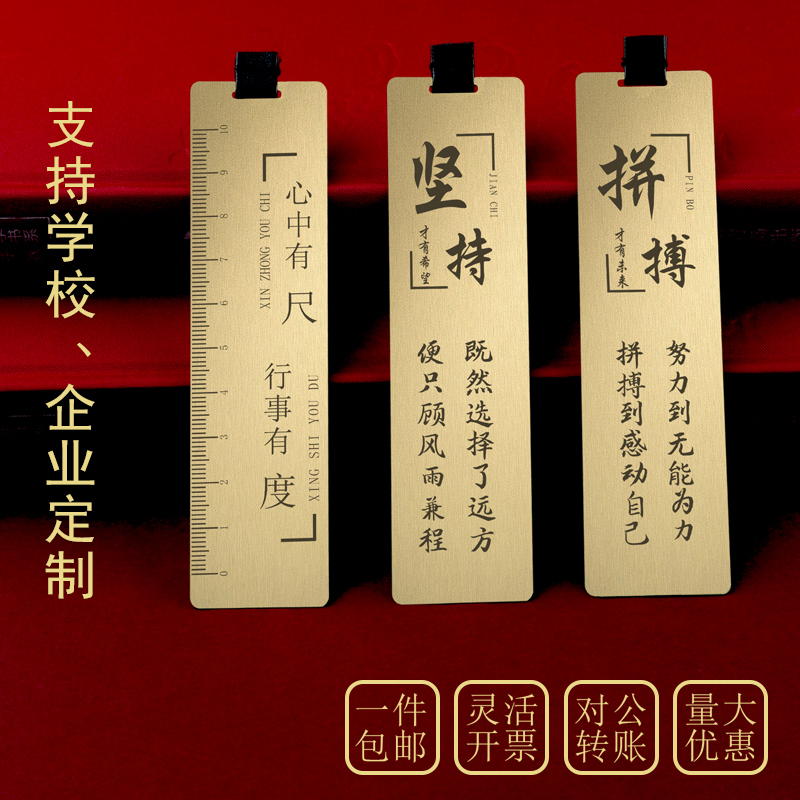 支持学校、企业定制
10
9
8
7
6
5
4
3
2
1
0
心中有尺
XIN ZHONG YOU CHI
行事有度
XING SHI YOU DU
坚持
JIAN CHI
才有希望
既然选择了远方
便只顾风雨兼程
拼搏
PIN BO
才有未来
努力到无能为力
拼搏到感动自己
一件包邮
灵活开票
对公转账
量大优惠